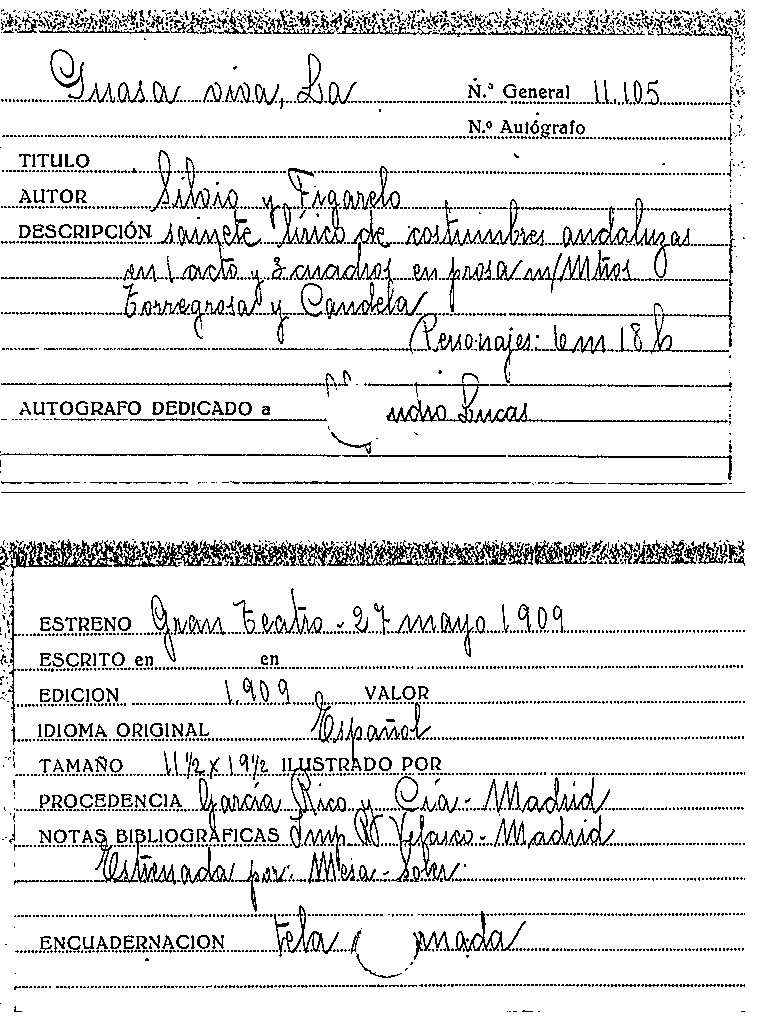 Guasa viva, La N.º General 11.105
N.º Autógrafo
TITULO
AUTOR Silvio y Figarelo
DESCRIPCIÓN sainete lírico de costumbres andaluzas
en 1 acto y 3 cuadros en prosa m/Mtros
Torregrosa y Candela
Personajes: 6 m 18 h
AUTOGRAFO DEDICADO a Lucas
ESTRENO Gran Teatro - 27 mayo 1909
ESCRITO en en
EDICION 1.909 VALOR
IDIOMA ORIGINAL Español
TAMAÑO 11 1/2 x 19 1/2 ILUSTRADO POR
PROCEDENCIA García Rico y Cía - Madrid
NOTAS BIBLIOGRAFICAS Imp R Velasco - Madrid
Estrenada por: Mesa - Soler
ENCUADERNACION tela